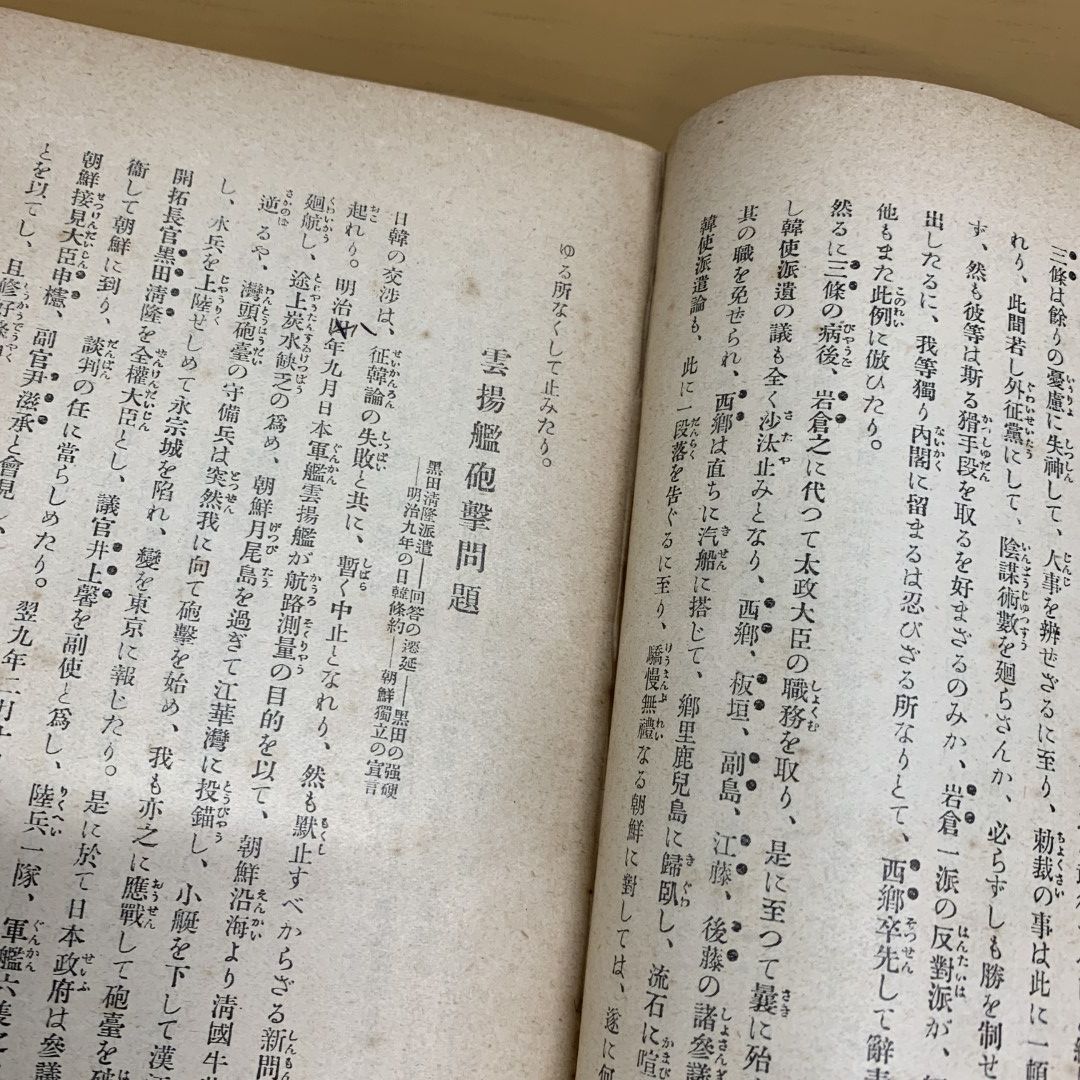 三條は餘りの憂慮に失神して、大事を辨ぜざるに至り、勅裁の事は此に一頓
れり、此間若し外征黨にして、陰謀術數を廻らさんか、必らずしも勝を制せ
ず、然も彼等は斯る猾手段を取るを好まざるのみか、岩倉一派の反對派が、
出したるに、我等獨り內閣に留まるは忍びざる所なりとて、西鄕卒先して辭表
他もまた此例に倣ひたり。
然るに三條の病後、岩倉之に代つて太政大臣の職務を取り、是に至つて曩に殆
し韓使派遣の議も全く沙汰止みとなり、西鄕、板垣、副島、江藤、後藤の諸參議
其の職を免ぜられ、西鄕は直ちに汽船に搭じて、鄕里鹿兒島に歸臥し、流石に喧
韓使派遣論も、此に一段落を告ぐるに至り、驕慢無禮なる朝鮮に對しては、遂に何
ゆる所なくして止みたり。
雲揚艦砲擊問題
黑田淸隆派遣——回答の遷延——黑田の强硬
——明治九年の日韓條約——朝鮮獨立の宣言
日韓の交涉は、征韓論の失敗と共に、暫く中止となれり、然も默止すべからざる新問
起れり。明治八年九月日本軍艦雲揚艦が航路測量の目的を以て、朝鮮沿海より淸國牛
廻航し、途上炭水缺乏の爲め、朝鮮月尾島を過ぎて江華灣に投錨し、小艇を下して漢
逆るや、灣頭砲臺の守備兵は突然我に向て砲擊を始め、我も亦之に應戰して砲臺を破
し、水兵を上陸せしめて永宗城を陷れ、變を東京に報じたり。是に於て日本政府は參議
開拓長官黑田淸隆を全權大臣とし、議官井上馨を副使と爲し、陸兵一隊、軍艦六隻
銜して朝鮮に到り、談判の任に當らしめたり。翌九年二月十
朝鮮接見大臣申櫶、副官尹滋承と會見し、
とを以てし、且修好條